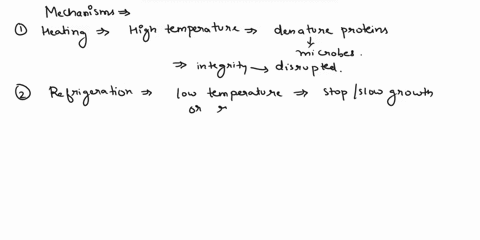 Mechanisms ⇒
① Heating ⇒ High temperature ⇒ denature proteins
↓
microbes.
⇒ integrity → disrupted.
② Refrigeration ⇒ low temperature ⇒ stop/slow growth
or r